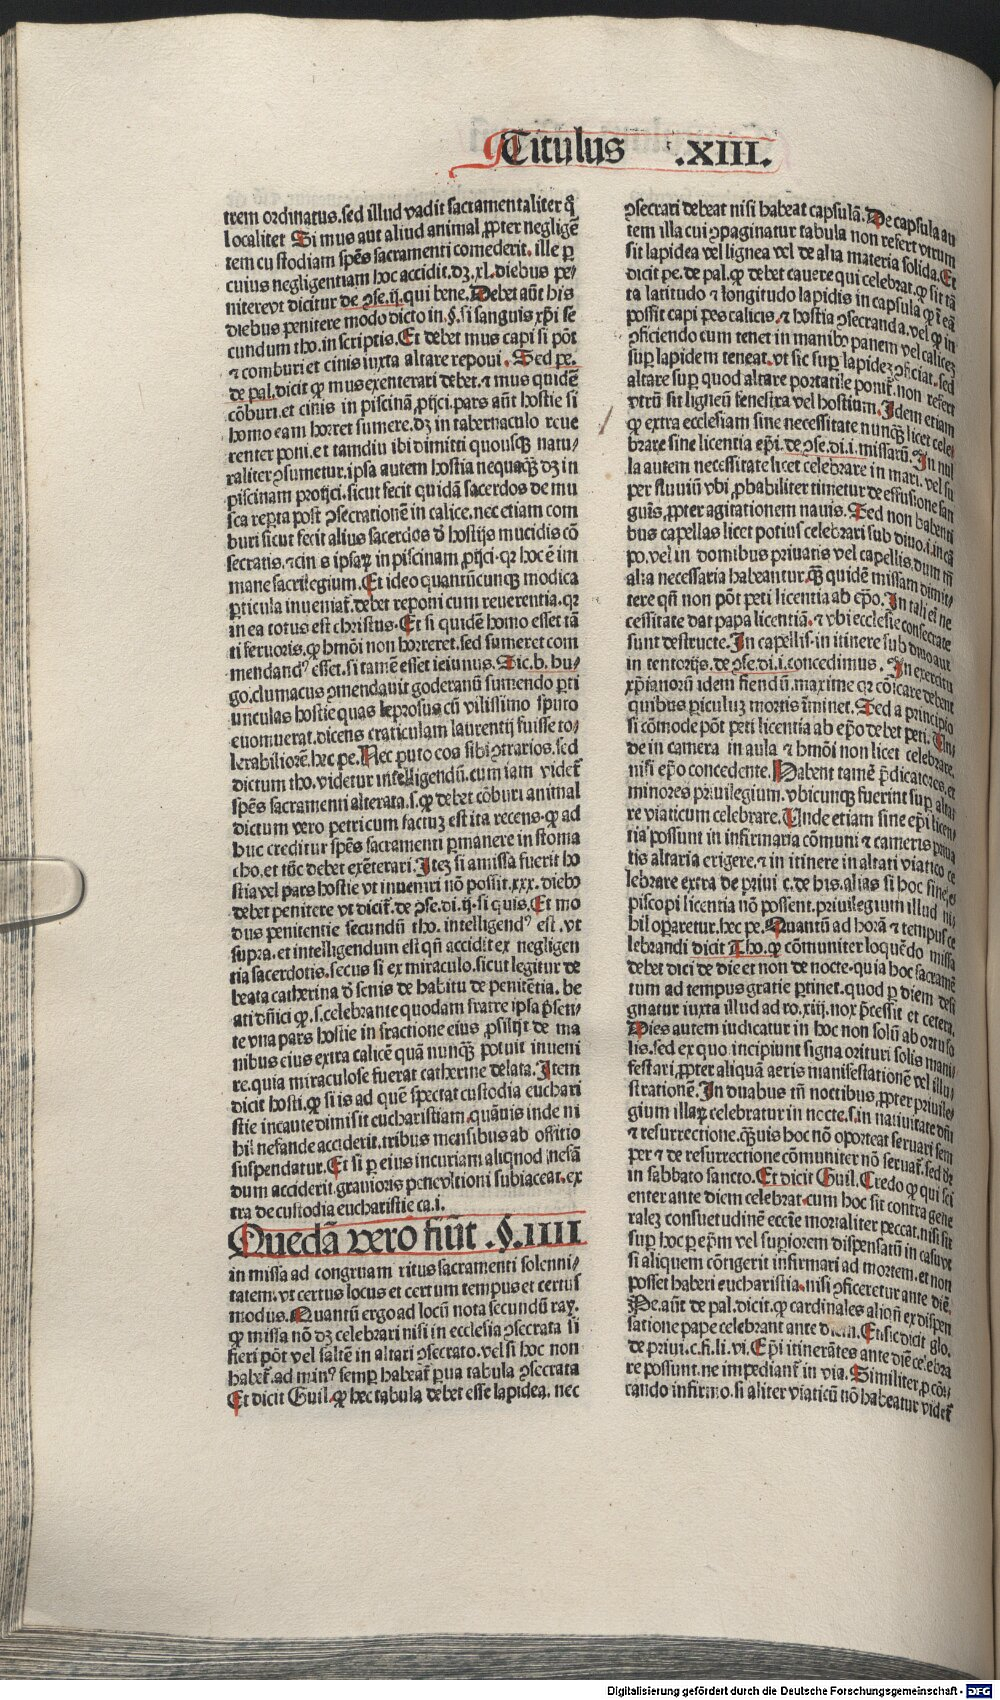 Titulus .XIII.
trem ordinatus. sed illud vadit sacramentaliter q̄
localiter Si mus aut aliud animal ꝓpter negligē
tem custodiam spēs sacramenti comederit. ille ꝑ
cuius negligentiam hoc accidit. dꝫ. xl. diebus pe/
niterevt dicitur de ꝯse. ij. qui bene. Debet aūt his
diebus penitere modo dicto in. §. si sanguis xp̄i se
cundum tho. in scriptis. Et debet mus capi si pōt
⁊ comburi et cinis iuxta altare repoui. Sed pe.
de pal. dicit ꝙ mus exenterari debet. ⁊ mus quidē
cōburi. et cinis in piscinā ꝓijci. pars aūt hostie si
homo eam horret sumere. dꝫ in tabernaculo reue
renter poni. et tamdiu ibi dimitti quousqꝫ natu/
raliter ꝯsumetur. ipsa autem hostia nequaqꝫ dꝫ in
piscinam proijci. sicut fecit quidā sacerdos de mu
sca reꝑta post ꝯsecrationē in calice. nec etiam com
buri sicut fecit alius sacerdos d̄ hostijs mucidis cō
secratis. ⁊ cin s ipsaꝝ in piscinam ꝓijci. qꝛ hoc ē im
mane sacrilegium. Et ideo quantūcunqꝫ modica
ꝑticula inueniat̄. debet reponi cum reuerentia. qꝛ
in ea totus est christus. Et si quidē homo esset tā
ti feruoris. ꝙ hmōi non horreret. sed sumeret com
mendandꝰ esset. si tamē esset ieiunus. Sic. b. hu/
go. clumacus ꝯmendauit goderanū sumendo ꝑti
unculas hostie quas leprosus cū vilissimo sputo
euomuerat. dicens craticulam laurentij fuisse to/
lerabiliorē. hec pe. Nec puto eos sibi ꝯtrarios. sed
dictum tho. videtur intelligendū. cum iam videt̄
spēs sacramenti alterata. s. ꝙ debet cōburi animal
dictum vero petri cum factuꝫ est ita recens. ꝙ ad
huc creditur spēs sacramenti ꝑmanere in stoma
cho. et tūc debet exēterari. Iteꝫ si amissa fuerit ho
stia vel pars hostie vt inueniri nō possit. xxx. diebꝰ
debet penitere vt dicit̄. de ꝯse. di. ij. si quis. Et mo
dus penitentie secundū tho. intelligendꝰ est. vt
supra. et intelligendum est qn̄ accidit ex negligen
tia sacerdotis. secus si ex miraculo. sicut legitur de
beata catherina d̄ senis de habitu de penitētia. be
ati dn̄ici ꝙ. s. celebrante quodam fratre ipsa p̄sen/
te vna pars hostie in fractione eius ꝓsilijt de ma
nibus eius extra calicē quā nunqꝫ potuit inueni
re. quia miraculose fuerat catherine delata. Item
dicit hosti. ꝙ si is ad quē spectat custodia euchari
stie incaute dimisit eucharistiam. quāuis inde ni
hil nefande acciderit. tribus mensibus ab offitio
suspendatur. Et si ꝑ eius incuriam aliqnod nefā
dum acciderit. grauioris penevltioni subiaceat. ex
tra de custodia eucharistie ca. i.
Quedā vero fiūt .§. IIII
in missa ad congruam ritus sacramenti solenni/
tatem. vt certus locus et certum tempus et certus
modus. Quantū ergo ad locū nota secundū ray.
ꝙ missa nō dꝫ celebrari nisi in ecclesia ꝯsecrata si
fieri pōt vel saltē in altari ꝯsecrato. vel si hoc non
habet̄. ad minꝰ semꝑ habeat̄ ꝑua tabula ꝯsecrata
Et dicit Guil. ꝙ hec tabula debet esse lapidea. nec
ꝯsecrari debeat nisi habeat capsulā. De capsula au
tem illa cui ꝯpaginatur tabula non refert vtrum
sit lapidea vel lignea vel de alia materia solida. Et
dicit pe. de pal. ꝙ debet cauere qui celebrat. ꝙ sit tā
ta latitudo ⁊ longitudo lapidis in capsula ꝙ ī ea
possit capi pes calicis. ⁊ hostia ꝯsecranda. vel ꝙ in
ꝯficiendo cum tenet in manibꝰ panem vel calicē
suꝑ lapidem teneat. vt sic suꝑ lapideꝫ ꝯficiat. sed
altare suꝑ quod altare portatile ponit̄. non refert
vtrū sit ligneū fenestra vel hostium. Idem etiam
ꝙ extra ecclesiam sine necessitate nunqꝫ licet cele/
brare sine licentia ep̄i. de ꝯse. di. i. missarū. In nul
la autem necessitate licet celebrare in mari. vel su
per fluuiū vbi ꝓbabiliter timetur de effusione san
guīs. ꝓpter agitationem nauis. Sed non habenti
bus capellas licet potius celebrari sub diuo. s. in cā
po. vel in domibus priuatis vel capellis. dum tn̄
alia necessaria habeantur. qꝫ quidē missam dimit/
tere qn̄ non pōt peti licentia ab ep̄o. In tali ei ne
cessitate dat papa licentiā. ⁊ vbi ecclesie consecrate
sunt destructe. In capellis. in itinere sub diuo aut
in tentorijs. de ꝯse. di. i. concedimus. In exercitu
xp̄ianorū idem fiendū. maxime qꝛ cōicare debent
quibus periculuꝫ mortis īminet. Sed a principio
si cōmode pōt peti licentia ab ep̄o debet peti. Un/
de in camera in aula ⁊ hmōi non licet celebrare.
nisi ep̄o concedente. Habent tamē p̄dicatores. et
minores priuilegium. vbicunqꝫ fuerint suꝑ alta/
re viaticum celebrare. Unde etiam sine ep̄i licen/
tia possunt in infirmaria cōmuni ⁊ cameris priua
tis altaria erigere. ⁊ in itinere in altari viatico ce
lebrare extra de priui c. de his. alias si hoc sine es
piscopi licentia nō possent. priuilegium illud ni/
hil oꝑaretur. hec pe. Quantū ad horā ⁊ tempus ce
lebrandi dicit Tho. ꝙ cōmuniter loquēdo missa
debet dici de die et non de nocte. quia hoc sacramē
tum ad tempus gratie ꝑtinet. quod ꝑ diem desi
gnatur iuxta illud ad ro. xiij. nox p̄cessit et cetera.
Dies autem iudicatur in hoc non solū ab ortu so
lis. sed ex quo incipiunt signa orituri solis mani/
festari. ꝓpter aliquā aeris manifestationē vel illu/
strationē. In duabus tn̄ noctibus. ꝓpter priuile/
gium illaꝝ celebratur in nocte. s. in natiuitate dn̄i
⁊ resurrectione. qꝫuis hoc nō oporteat seruari sem
per ⁊ de resurrectione cōmuniter nō seruat̄. sed dꝛ
in sabbato sancto. Et dicit Guil. Credo ꝙ qui sci
enter ante diem celebrat. cum hoc sit contra gene
raleꝫ consuetudinē eccl̄ie mortaliter peccat. nisi sit
suꝑ hoc ꝑ ep̄m vel suꝑiorem dispensatū in casu vt
si aliquem cōtigerit infirmari ad mortem. et non
posset haberi eucharistia. nisi ꝯficeretur ante diē.
Pe. aūt de pal. dicit. ꝙ cardinales aliqn̄ ex dispen
satione pape celebrant ante diem. Et sic dicit glo.
de priui. c. fi. li. vi. Ep̄i itinerātes ante diē celebra
re possunt. ne impediant̄ in via. Similiter ꝓ cōi/
cando infirmo. si aliter viaticū nō habeatur videt̄
Digitalisierung gefördert durch die Deutsche Forschungsgemeinschaft - DFG